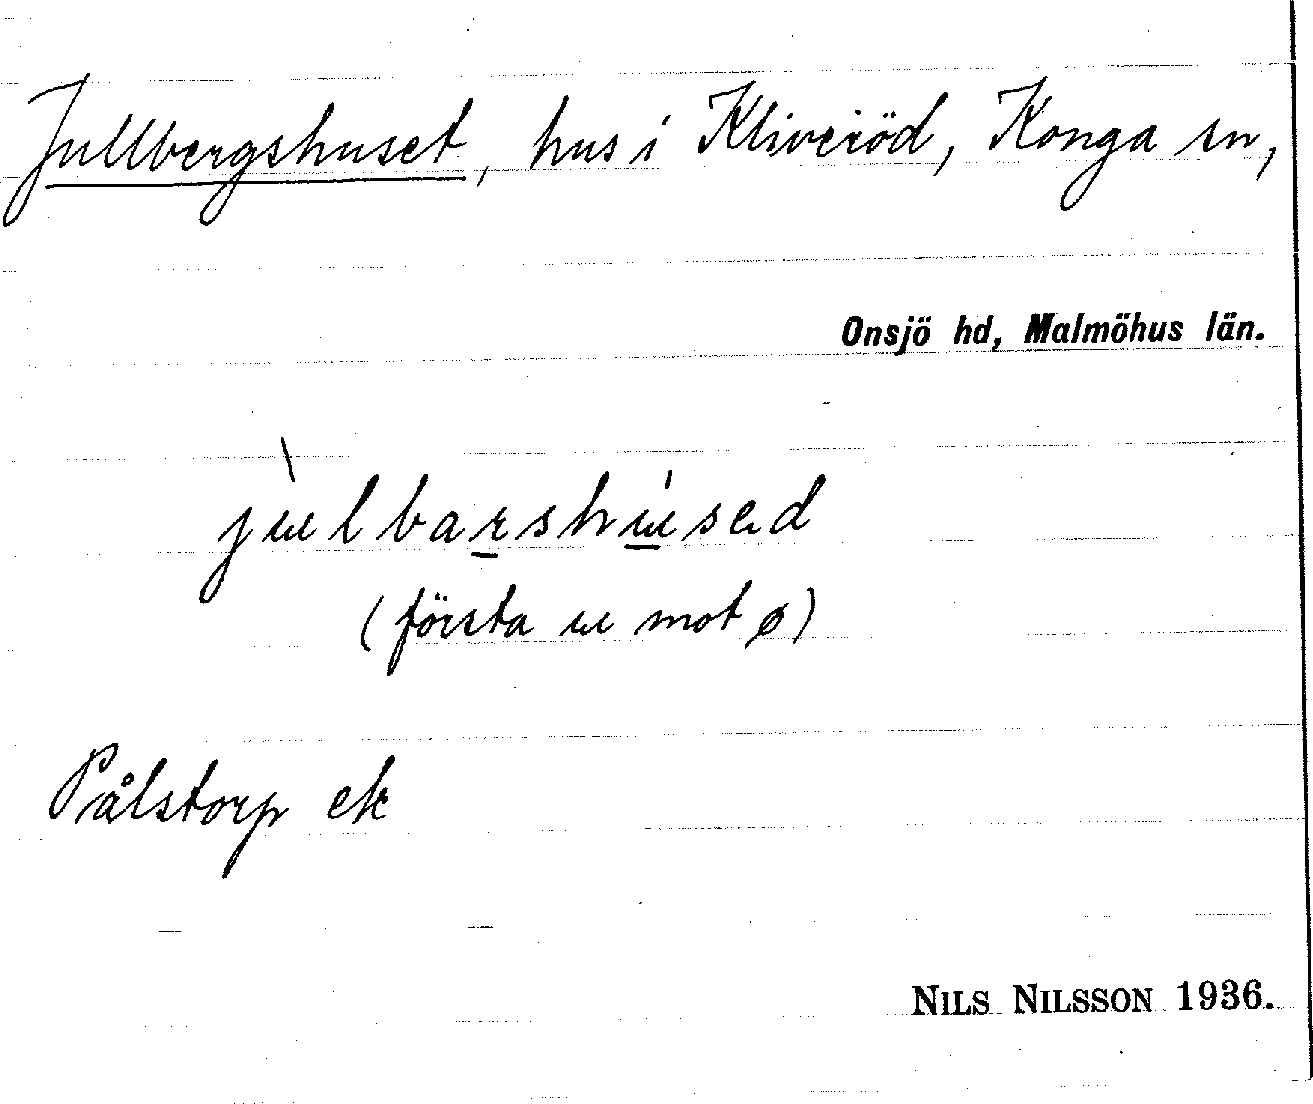 Jullbergshuset, hus i Kliveröd, Konga sn,
Onsjö hd, Malmöhus län.
jɯ̀lbarshɯ́sɐd
(första ɯ mot ø)
Pålstorp ek
NILS NILSSON 1936.